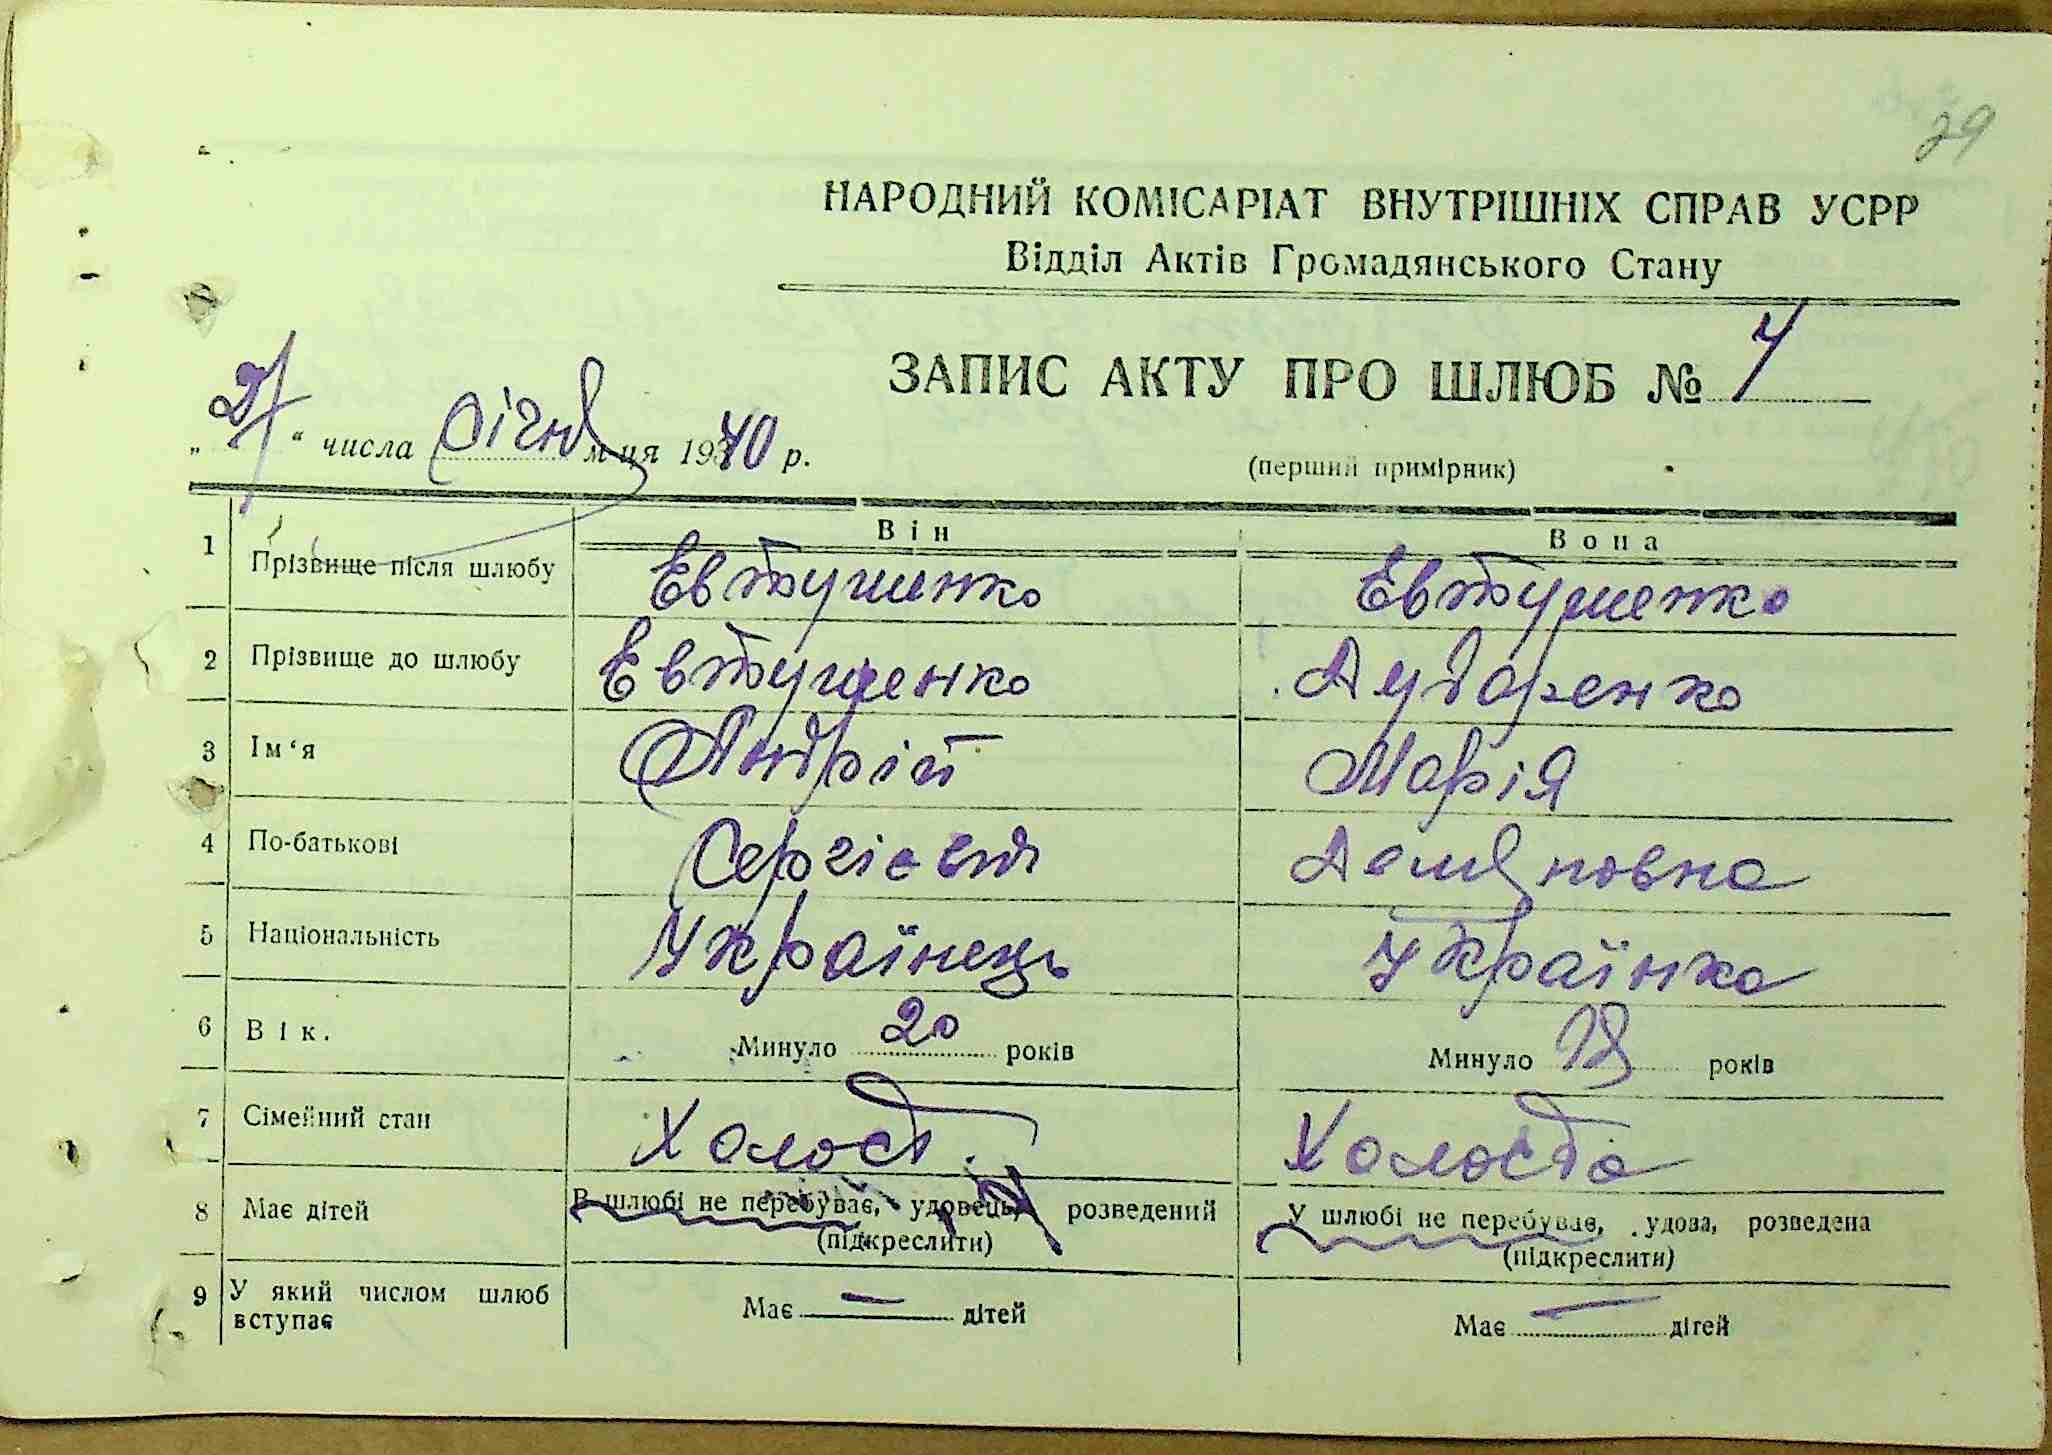 29
НАРОДНИЙ КОМІСАРІАТ ВНУТРІШНІХ СПРАВ УСРР
Відділ Актів Громадянського Стану
ЗАПИС АКТУ ПРО ШЛЮБ №
„ “ числа січня м-ця 1940 р.
(перший примірник)
Він Вона
1 Прізвище після шлюбу Евтушенко Евтушенко
2 Прізвище до шлюбу Евтушенко Дударенко
3 Ім‘я Андрій Марія
4 По-батькові Сергієвич Демяновна
5 Національність Українець Українка
6 Вік. Минуло 20 років Минуло 18 років
7 Сімейний стан Холост. Холоста
8 Має дітей В шлюбі не перебуває, удовець, розведений У шлюбі не перебуває, удова, розведена
(підкреслити) (підкреслити)
9 У який числом шлюб вступає Має — дітей Має — дітей